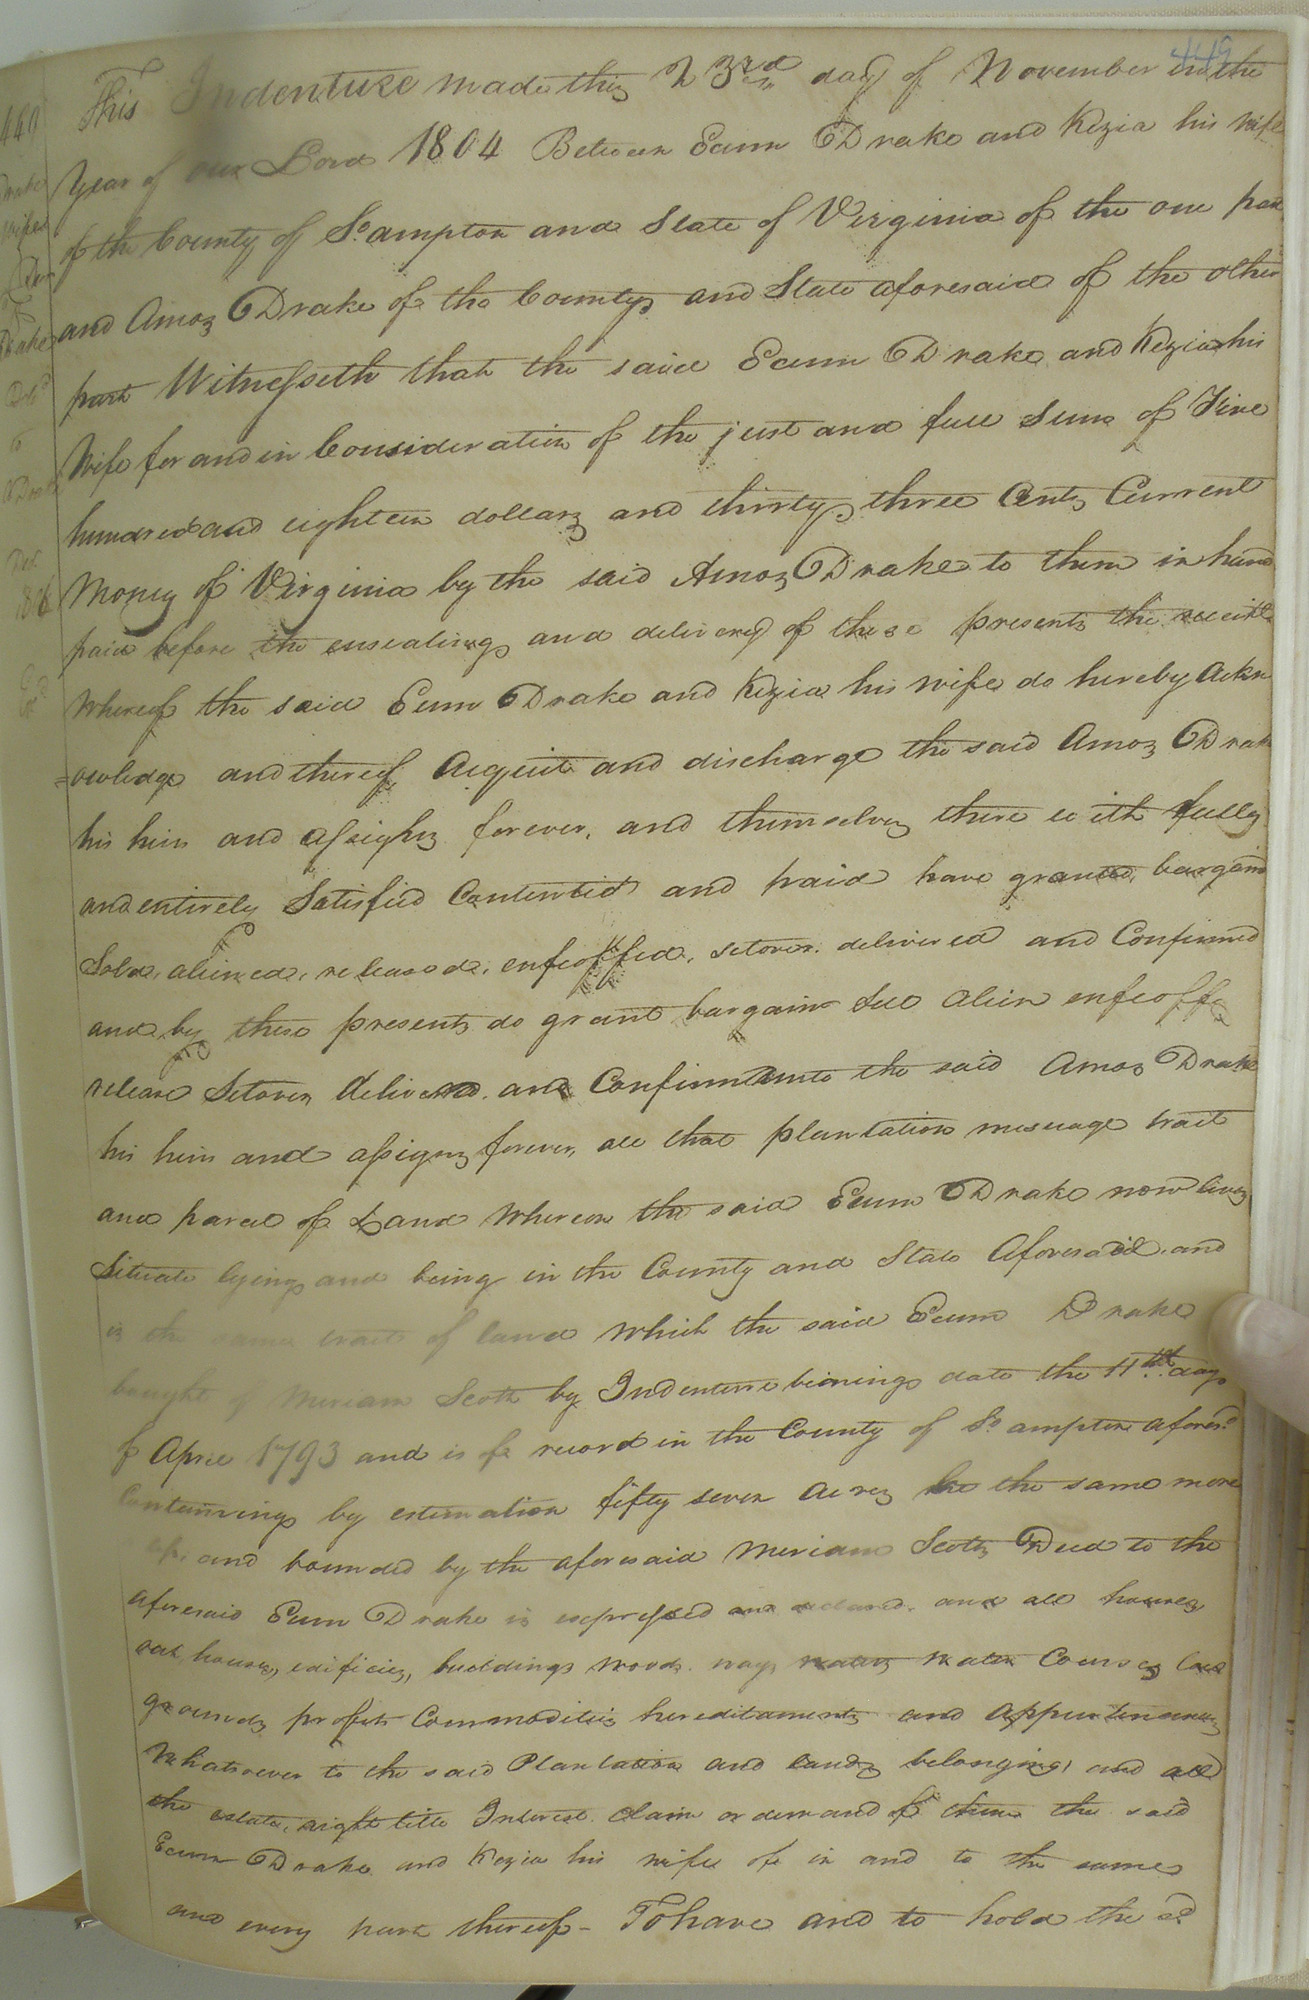 449
This Indenture made this 23rd day of November in the
Year of our Lord 1804 Between Eaum Drake and Kezia his wife
of the County of So.ampton and State of Virginia of the one part
and Amos Drake of the County and State aforesaid of the other
part Witnesseth that the said Eaum Drake and Kezia his
Wife for and in Consideration of the just and full Sum of Five
hundred and eighteen dollars and thirty three Cents Current
Money of Virginia by the said Amos Drake to them in hand
paid before the ensealing and delivery of these presents the receitt
Whereof the said Eaum Drake and Kezia his wife do hereby Ackn
=owledge and thereof Acquit and discharge the said Amos Drake
his hiirs and assighns forever, and themselves there with fully
and entirely Satisfied Contented and paid have granted, bargain
Sold, aliened, released, enfeoffed, setover, delivered and Confirmed
and by these presents do grant bargain Sell Alien enfeoff
release Setover delivered, and Confirm unto the said Amos Drake
his hiirs and assigns forever, all that plantation messuage tract
and parcel of Land Whereon the said Eaum Drake now lives
Situate lying and being in the County and State Aforesaid, and
is the same tract of land Which the said Eaum Drake
bought of Meriam Scott by Indenture bearing date the 11th day
of April 1793 and is of record in the County of So ampton afores.d
Containing by estimation fifty seven Acres be the same more
and bounded by the aforesaid Meriam Scotts Deed to the
aforesaid Eaum Drake is expressed and declared, and all houses,
out houses, edificies, buildings woods, ways waters water Courses
grounds profits Commodities hereditaments and Appurtenances
Whatsoever to the said Plantation and lands belonging, and all
the estate, right title Interest Claim or demand of them the said
Eaum Drake and Kezia his wife of in and to the same
and every part thereof - To have and to hold the sd
440
Drake
wife
Drake
to
Drake
1806